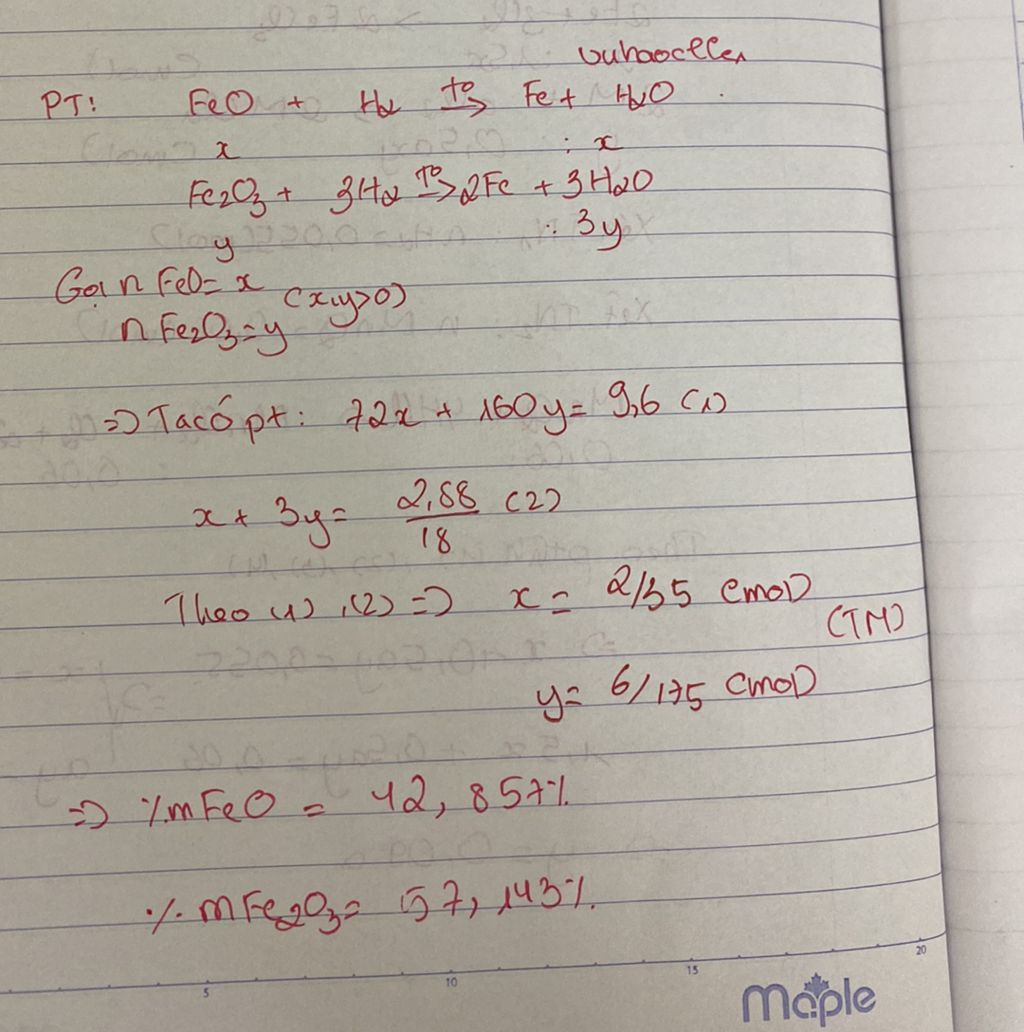 vuhaocllen
PT: FeO + H2 t°→ Fe + H2O .
x : x
Fe2O3 + 3H2 T°→ 2Fe + 3H2O
y : 3y
Gọi n FeO = x
(x,y>0)
n Fe2O3 = y
=> Ta có pt: 72x + 160y = 9,6 (1)
x + 3y = 2,88/18 (2)
Theo (1), (2) => x = 2/35 (mol)
(TM)
y = 6/175 (mol)
=> %mFeO = 42,857%
%mFe2O3 = 57,143%.
5 10 15 20
maple